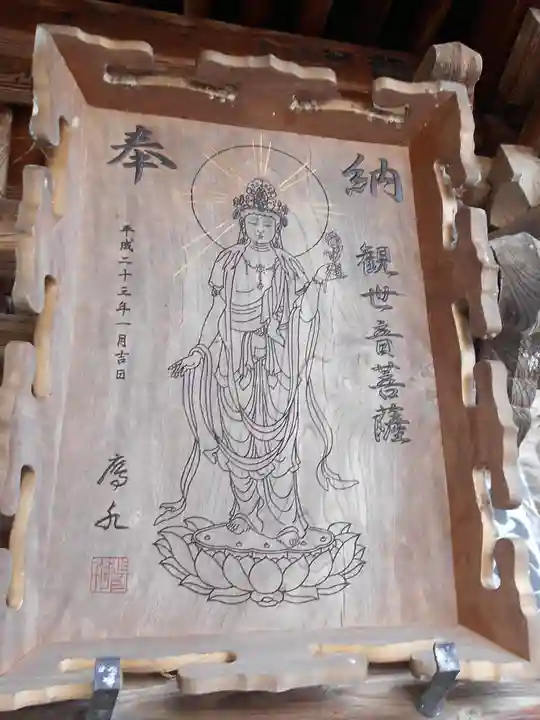 奉納
観世音菩薩
平成二十三年一月吉日